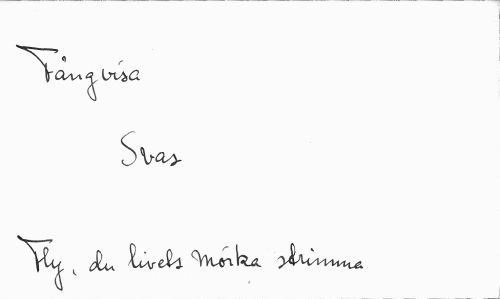 Fångvisa
Svas
Fly, du livets mörka strimma